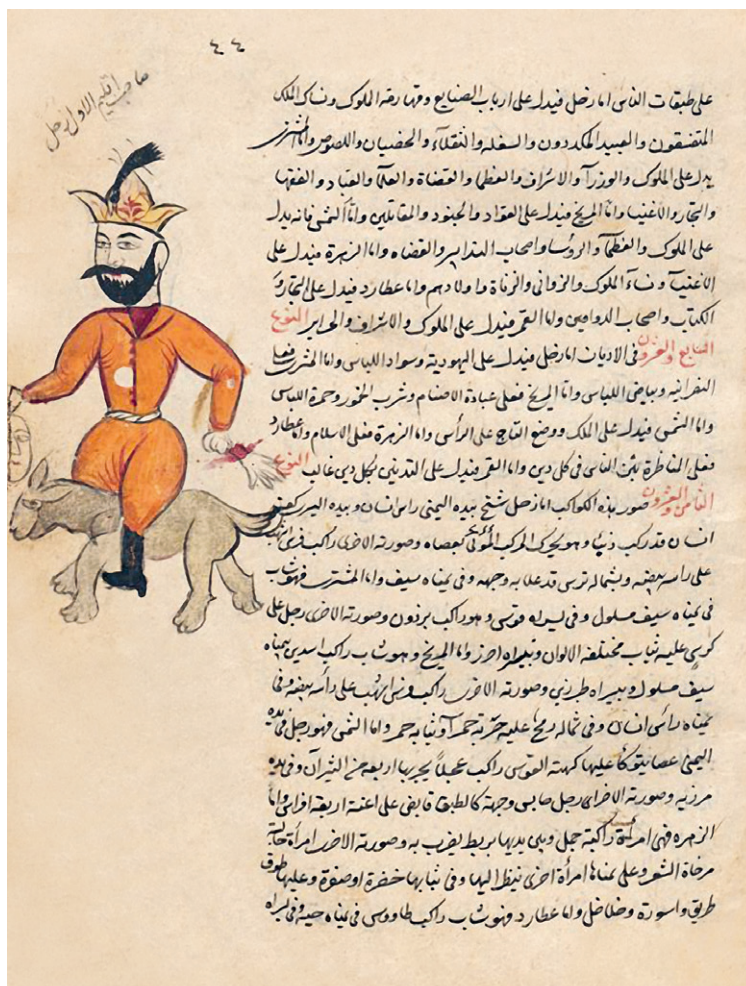 ٤٤
صاحب اقليم الاول زحل
على طبقات الناس اما زحل فيدل على ارباب الصنايع وقهارمة الملوك ونساك الملك
المتقشفون والعبيد المكددون والسفله والثقلآء والخصيان واللصوص واما المشترى
يدل على الملوك والوزرآ والاشراف والعظما والقضاة والعلما والعباد والفقها
والتجار والاغنيا واما المريخ فيدل على القواد والجنود والمقاتلين واما الشمس فانه يدل
على الملوك والعظمآ والروسا واصحاب التدابير والقضاه واما الزهرة فيدل على
الاغنيآ ونسآء الملوك والزوانى والزناة واولادهم واما عطارد فيدل على التجار و
الكتاب واصحاب الدواوين واما القمر فيدل على الملوك والاشراف والحراير النوع
السابع والعشرون فى الاديان اما زحل فيدل على اليهودية وسواد اللباس واما المشترى فعلى
النصرانيه وبياض اللباس واما المريخ فعلى عبادة الاصنام وشرب الخمور وحمرة اللباس
واما الشمس فيدل على الملك ووضع التاج على الرأس واما الزهرة فعلى الاسلام واما عطارد
فعلى المناظرة بين الناس فى كل دين واما القمر فيدل على التدين بكل دين غالب النوع
الثامن والعشرون صور هذه الكواكب اما زحل شيخ بيده اليمنى راس انسان وبيده اليسرى كف
انسان قد ركب ذئبا وهو يحرك المركب بعصاه وصورته الاخرى راكب فرس
على راسه بيضه وبشماله ترس قد علا به وجهه وفى يمناه سيف واما المشترى فهو شاب
فى يمناه سيف مسلول وفى يسراه قوس وهو راكب برذون وصورته الاخرى رجل على
كرسى عليه ثياب مختلفه الالوان وبيسراه واما المريخ وهو شاب راكب اسدين بيمناه
سيف مسلول وبيسراه طبرزين وصورته الاخرى راكب فرس اشهب على رأسه بيضه وفى
يمناه رأس انسان وفى شماله رمح عليه حمرآ وثيابه حمر واما الشمس فهو رجل فى يده
اليمنى عصا يتوكأ عليها كهيئة القوس راكب عجلاً يجرها اربعه من الثيران وفى يده
مرزبه وصورته الاخرى رجل جالس وجهه كالطبق قابض على اعنة اربعة افراس واما
الزهره فهى امرأة راكبة جمل وبين يديها بربط يضرب به وصورته الاخرى امرأة جالسة
مرخاة الشعر وعلى يمناها امرأة اخرى ينظر اليها وفى ثيابها خضرة او صفرة وعليها طوق
واسورة وخلاخل واما عطارد فهو شاب راكب طاووس فى يمناه حيه وفى يسراه